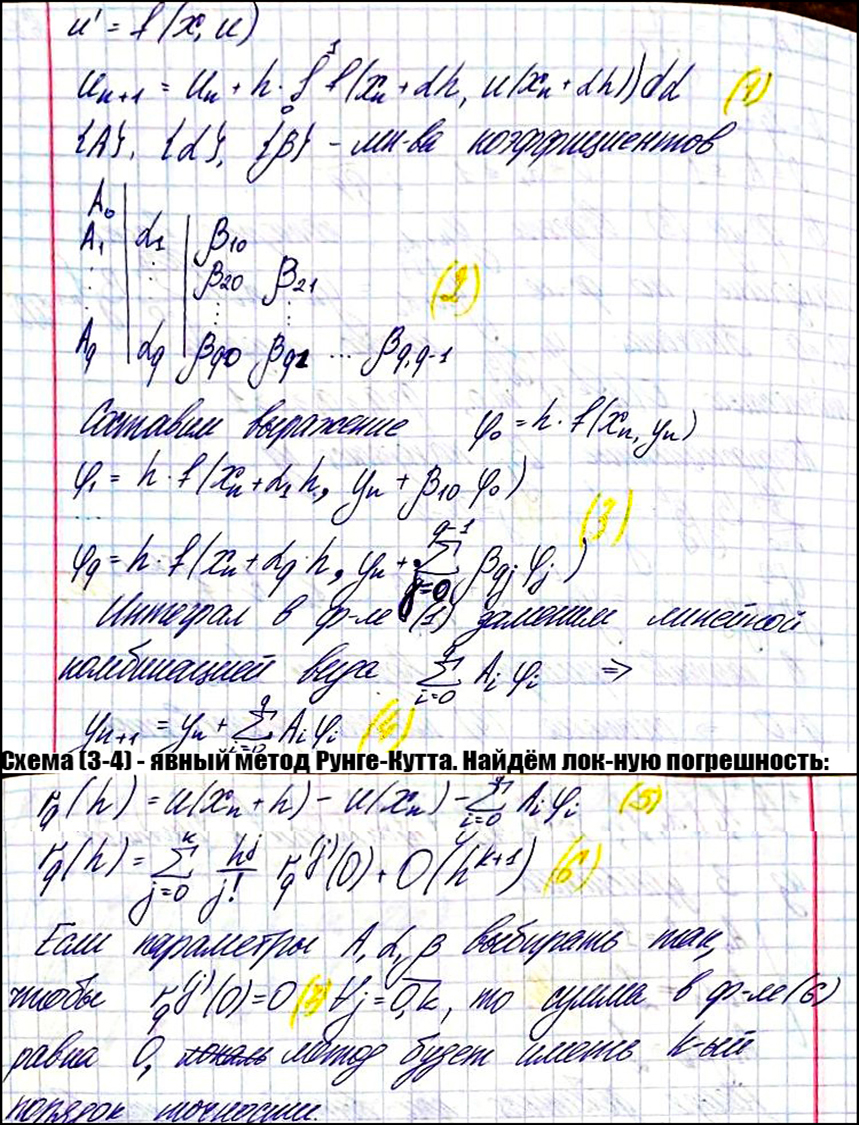 u' = f(x, u)
u_{n+1} = u_n + h · ∫_0^1 f(x_n + αh, u(x_n + αh))dα (1)
{A}, {α}, {β} - мн-ва коэффициентов
A_0
A_1 | α_1 | β_{10}
⋮ ⋮ β_{20} β_{21}
⋮ ⋮ ⋮ (2)
A_q | α_q | β_{q0} β_{q1} ... β_{q,q-1}
Составим выражение φ_0 = h · f(x_n, y_n)
φ_1 = h · f(x_n + α_1 h, y_n + β_{10} φ_0)
... (3)
φ_q = h · f(x_n + α_q · h, y_n + Σ_{j=0}^{q-1} β_{qj} φ_j)
Интеграл в ф-ле (1) заменим линейной
комбинацией вида Σ_{i=0}^{q} A_i φ_i ⇒
y_{n+1} = y_n + Σ_{i=0}^{q} A_i φ_i (4)
Схема (3-4) - явный метод Рунге-Кутта. Найдём лок-ную погрешность:
r_q(h) = u(x_n + h) - u(x_n) - Σ_{i=0}^{q} A_i φ_i (5)
r_q(h) = Σ_{j=0}^{k} h^j/j! r_q^{(j)}(0) + O(h^{k+1}) (6)
Если параметры A, α, β выбирать так,
чтобы r_q^{(j)}(0) = 0 (7) ∀j = 0,k, то сумма в ф-ле (6)
равна 0, метод будет иметь k-ый
порядок точности.